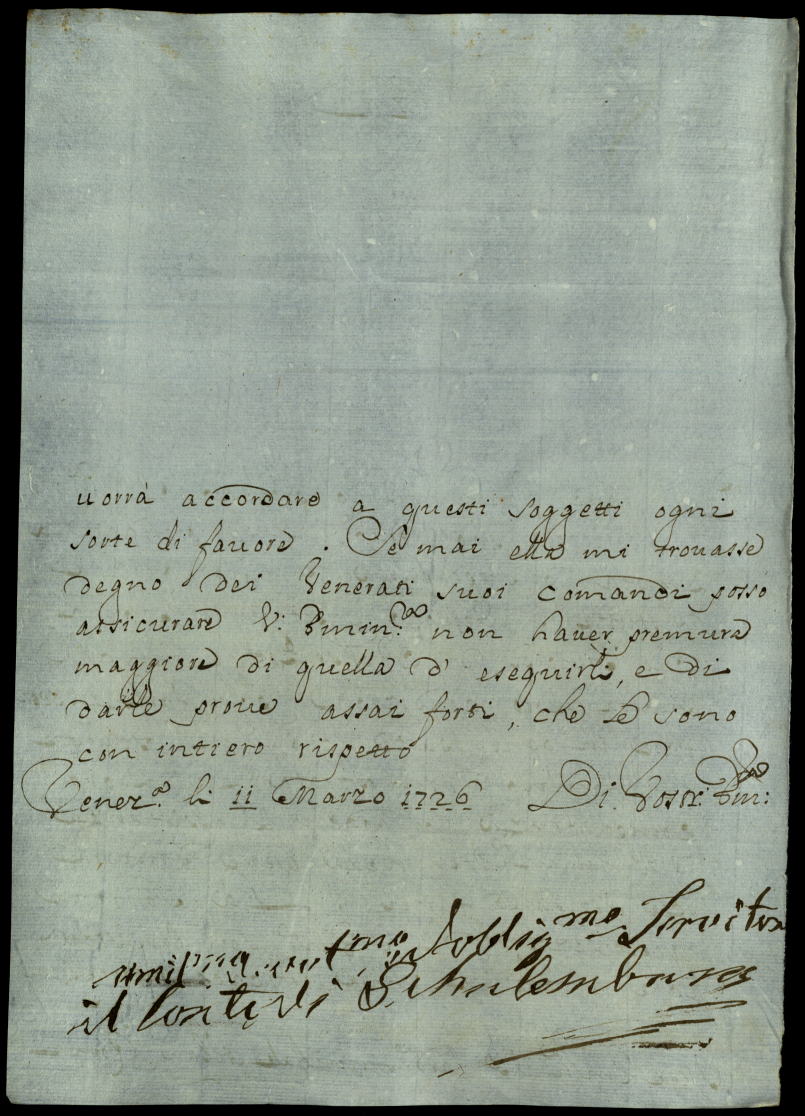 uorrà accordare a questi soggetti ogni
sorte di fauore. Se mai ella mi trouasse
degno dei Venerati suoi comandi posso
assicurare V: Emin:za non hauer premura
maggiore di quella d' eseguirli, e di
darle proue assai forti, che le sono
con intiero rispetto
Venez.a li 11 Marzo 1726 Di Vostr: Em:za
umil.mo et oblig.mo Servitor
il Conte di Schulemburg